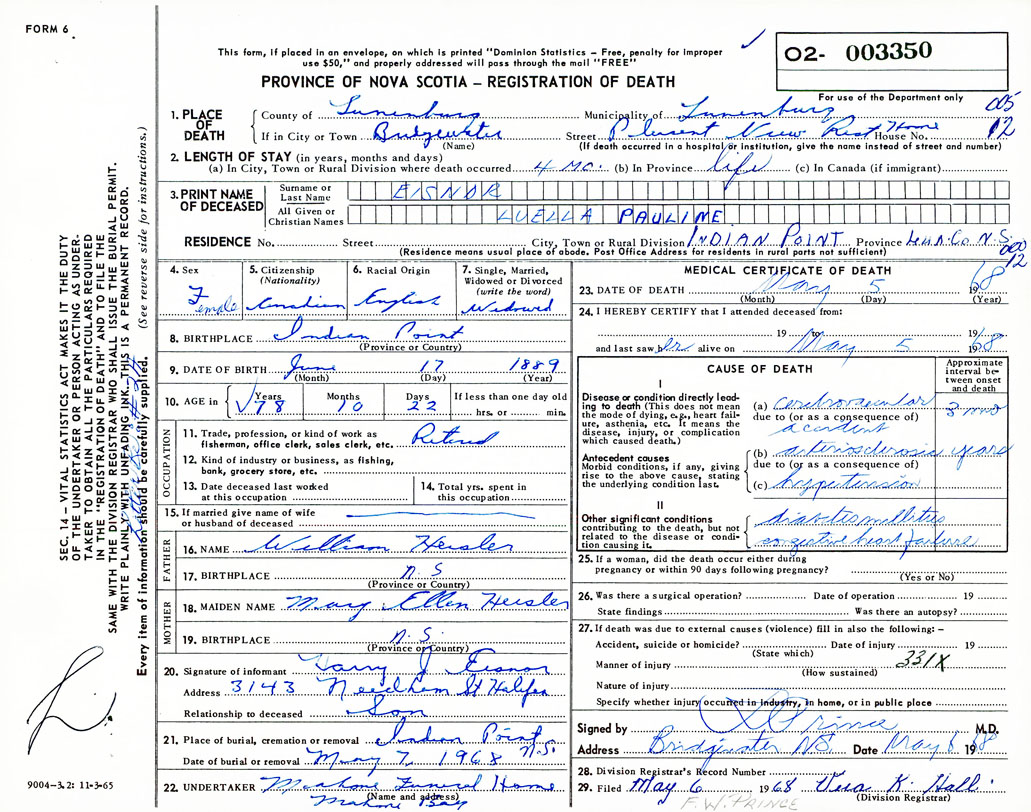 FORM 6
This form, if placed in an envelope, on which is printed "Dominion Statistics – Free, penalty for improper
use $50," and properly addressed will pass through the mail "FREE"
O2- 003350
PROVINCE OF NOVA SCOTIA – REGISTRATION OF DEATH
For use of the Department only
005
12
1. PLACE OF DEATH
County of Lunenburg Municipality of Lunenburg
If in City or Town Bridgewater Street Plesent View Rest Home House No.
(Name) (If death occurred in a hospital or institution, give the name instead of street and number)
2. LENGTH OF STAY (in years, months and days)
(a) In City, Town or Rural Division where death occurred 4 mo. (b) In Province life (c) In Canada (if immigrant)
3. PRINT NAME OF DECEASED
Surname or Last Name EISNOR
All Given or Christian Names LUELLA PAULINE
RESIDENCE No. Street City, Town or Rural Division INDIAN POINT Province Lun. Co N.S.
(Residence means usual place of abode. Post Office Address for residents in rural parts not sufficient)
000
12
4. Sex Female
5. Citizenship (Nationality) Canadian
6. Racial Origin English
7. Single, Married, Widowed or Divorced (write the word) Widowed
8. BIRTHPLACE Indian Point
(Province or Country)
9. DATE OF BIRTH June 17 1889
(Month) (Day) (Year)
10. AGE in Years 78 Months 10 Days 22 If less than one day old hrs. or min.
OCCUPATION
11. Trade, profession, or kind of work as fisherman, office clerk, sales clerk, etc. Retired
12. Kind of industry or business, as fishing, bank, grocery store, etc.
13. Date deceased last worked at this occupation
14. Total yrs. spent in this occupation
15. If married give name of wife or husband of deceased
FATHER
16. NAME William Heisler
17. BIRTHPLACE N. S.
(Province or Country)
MOTHER
18. MAIDEN NAME Mary Ellen Heisler
19. BIRTHPLACE N. S.
(Province or Country)
20. Signature of informant Harry J Eisnor
Address 3143 Needham St Halifax
Relationship to deceased Son
21. Place of burial, cremation or removal Indian Point N.S.
Date of burial or removal May 7, 1968
22. UNDERTAKER Mahone Funeral Home
(Name and address)
Mahone Bay
MEDICAL CERTIFICATE OF DEATH
23. DATE OF DEATH May 5 1968
(Month) (Day) (Year)
24. I HEREBY CERTIFY that I attended deceased from:
19 to
and last saw her alive on May 5 1968
CAUSE OF DEATH
Approximate interval between onset and death
I
Disease or condition directly leading to death (This does not mean the mode of dying, e.g., heart failure, asthenia, etc. It means the disease, injury, or complication which caused death.)
(a) cerebrovascular 3 mos
due to (or as a consequence of)
accident
Antecedent causes
Morbid conditions, if any, giving rise to the above cause, stating the underlying condition last.
(b) arteriosclerosis years
due to (or as a consequence of)
(c) hypertension
II
Other significant conditions contributing to the death, but not related to the disease or condition causing it.
diabetes mellitus
congestive heart failure
25. If a woman, did the death occur either during pregnancy or within 90 days following pregnancy?
(Yes or No)
26. Was there a surgical operation? Date of operation 19
State findings Was there an autopsy?
27. If death was due to external causes (violence) fill in also the following: –
Accident, suicide or homicide? Date of injury 19
(State which)
Manner of injury 331X
(How sustained)
Nature of injury
Specify whether injury occurred in industry, in home, or in public place
Signed by Prince M.D.
Address Bridgewater NS Date May 6 1968
28. Division Registrar's Record Number
29. Filed May 6 1968 Vera K. Hall
(Division Registrar)
F. W. PRINCE
SEC. 14 – VITAL STATISTICS ACT MAKES IT THE DUTY
OF THE UNDERTAKER OR PERSON ACTING AS UNDER-
TAKER TO OBTAIN ALL THE PARTICULARS REQUIRED
IN THE "REGISTRATION OF DEATH" AND TO FILE THE
SAME WITH THE DIVISION REGISTRAR WHO SHALL ISSUE THE BURIAL PERMIT.
WRITE PLAINLY WITH UNFADING INK. THIS IS A PERMANENT RECORD.
Every item of information should be carefully supplied. (See reverse side for instructions.)
9004-3.2: 11-3-65